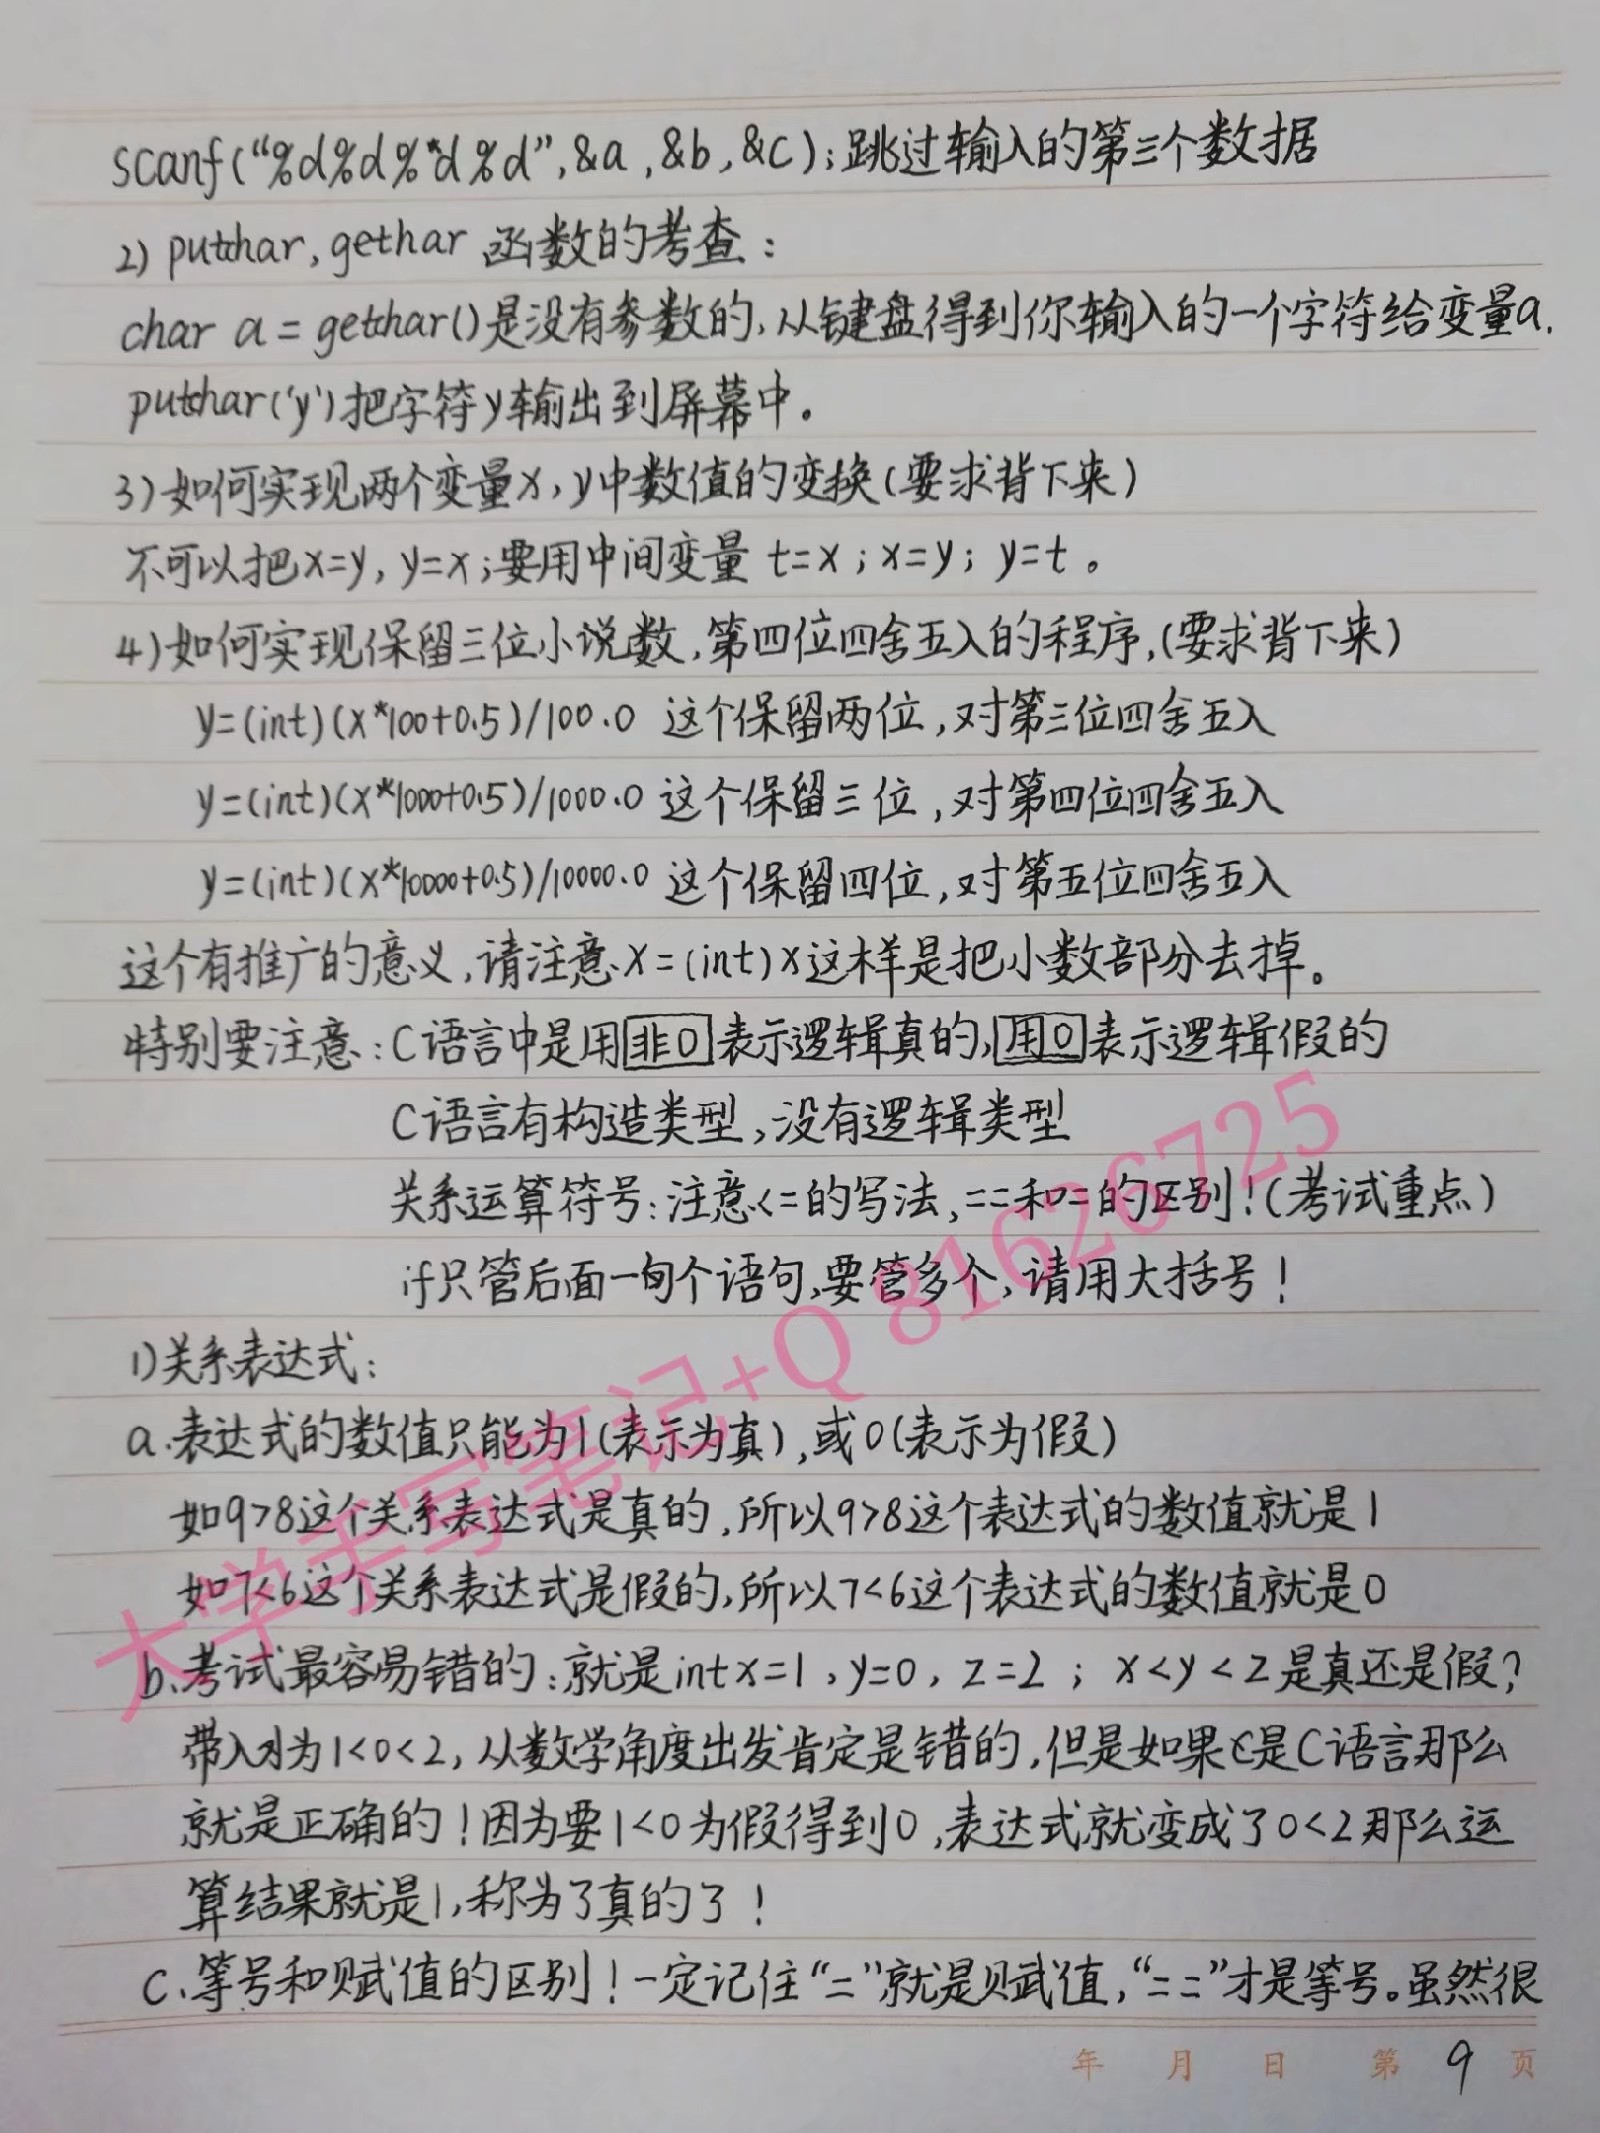 scanf(“%d%d%*d%d”,&a,&b,&c);跳过输入的第三个数据
2) putchar,gethar 函数的考查:
char a = getchar()是没有参数的,从键盘得到你输入的一个字符给变量a.
putchar('y')把字符y输出到屏幕中。
3)如何实现两个变量x,y中数值的变换(要求背下来)
不可以把x=y,y=x;要用中间变量 t=x;x=y;y=t。
4)如何实现保留三位小说数,第四位四舍五入的程序,(要求背下来)
y=(int)(x*100+0.5)/100.0 这个保留两位,对第三位四舍五入
y=(int)(x*1000+0.5)/1000.0 这个保留三位,对第四位四舍五入
y=(int)(x*10000+0.5)/10000.0 这个保留四位,对第五位四舍五入
这个有推广的意义,请注意x=(int)x这样是把小数部分去掉。
特别要注意:C语言中是用非0表示逻辑真的,用0表示逻辑假的
C语言有构造类型,没有逻辑类型
关系运算符号:注意<=的写法,==和=的区别!(考试重点)
if只管后面一个语句,要管多个,请用大括号!
1)关系表达式:
a.表达式的数值只能为1(表示为真),或0(表示为假)
如9>8这个关系表达式是真的,所以9>8这个表达式的数值就是1
如7<6这个关系表达式是假的,所以7<6这个表达式的数值就是0
b.考试最容易错的:就是int x=1,y=0,z=2;x<y<z是真还是假?
带入为1<0<2,从数学角度出发肯定是错的,但是如果是C语言那么
就是正确的!因为要1<0为假得到0,表达式就变成了0<2那么运
算结果就是1,称为了真的了!
c.等号和赋值的区别!一定记住“=”就是赋值,“==”才是等号。虽然很
年 月 日 第 9 页
大学手写笔记+Q 81626725